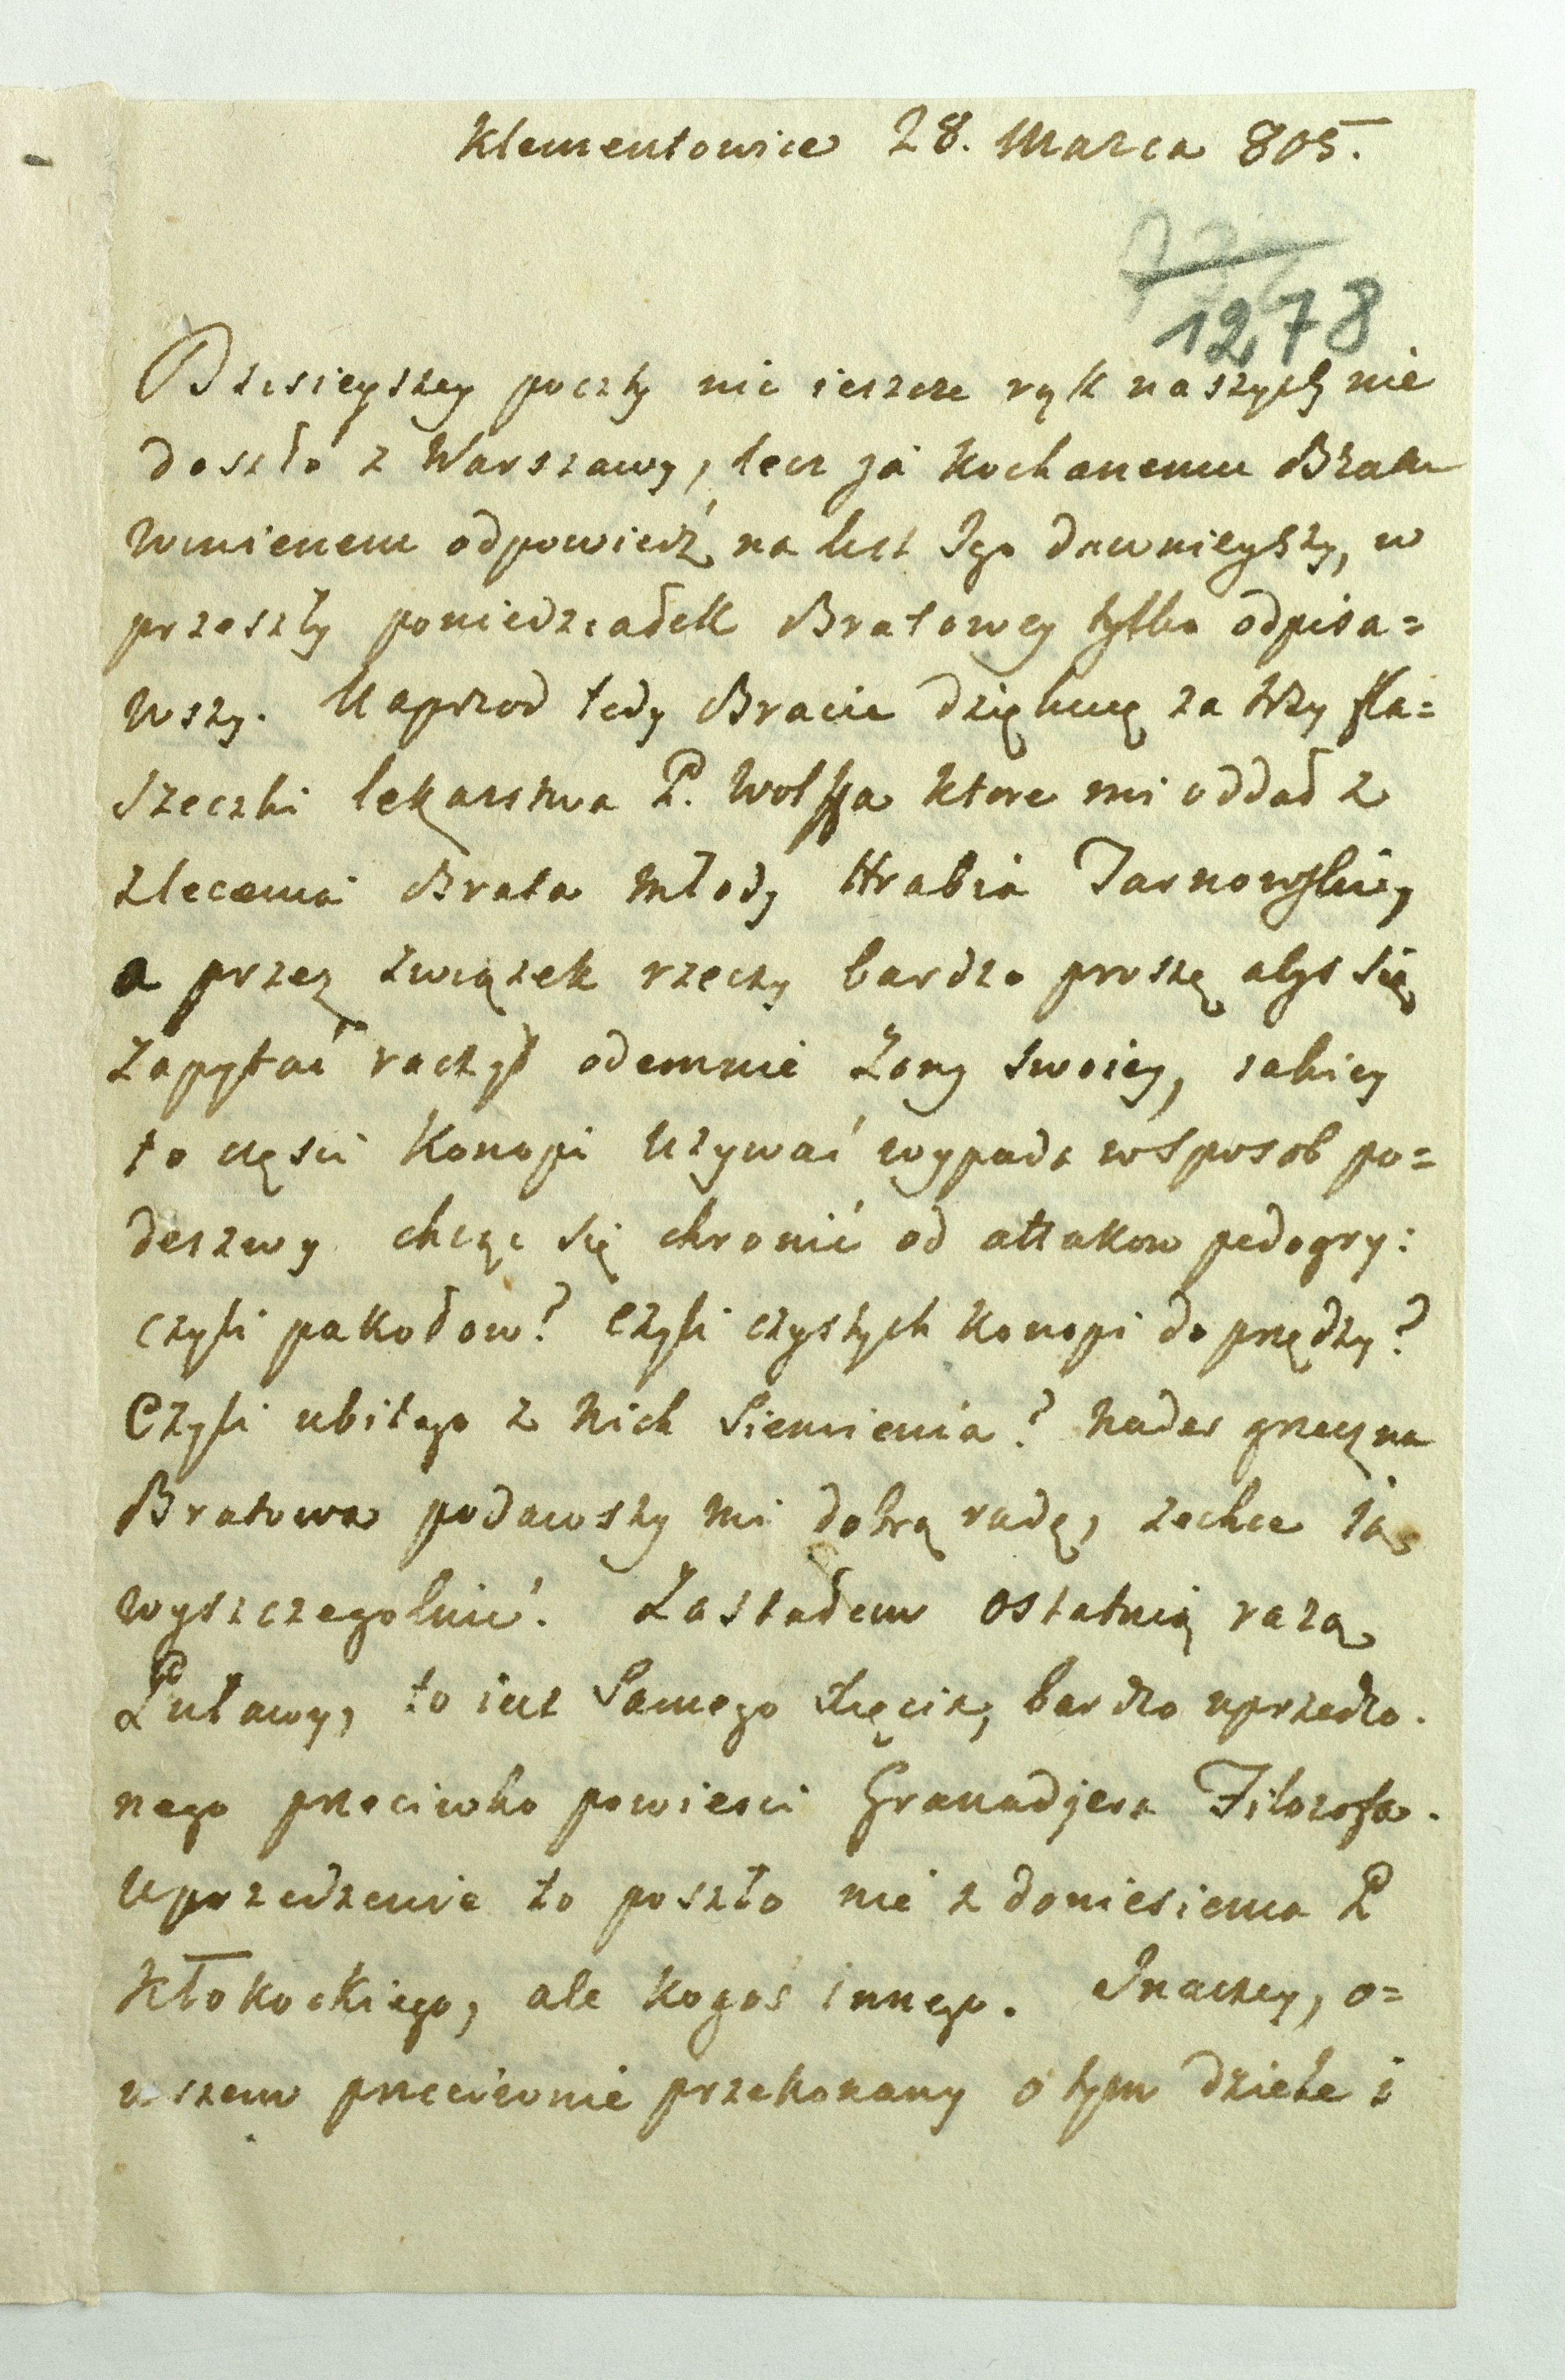 Klementowice 28. Marca 805.
1278
Dzisieyszey poczty nic ieszcze rąk naszych nie
doszło z Warszawy, lecz ja kochanemu Bratu
winienem odpowiedź na list Jego dawnieyszy, w
przeszły poniedziałek Bratowey tylko odpisa=
wszy. Naprzod tedy Bracie dziękuię za trzy fla=
szeczki lekarstwa P. Wolffa ktore mi oddał z
zlecenia Brata młody Hrabia Tarnowski,
a przez związek rzeczy bardzo proszę abyś się
zapytać raczył odemnie Zony swoiey, iakiey
to części Konopi Używać wypada wsposob po=
deszwy chcąc się chronić od attakow pedogry:
czyli pakołow? czyli czystych konopi do przędzy?
Czyli ubitego z nich Siemienia? Nader grzeczna
Bratowa podawszy mi dobrą radę, zechce ią
wyszczegolnić. Zastałem ostatnią razą
Puławy, to iest Samego Xięcia, bardzo uprzedzo.
nego przeciwko powieści Granadjera Filozofa.
Uprzedzenie to poszło nie z doniesienia P
Kłokockiego, ale kogoś innego. Inaczey, o=
wszem przeciwnie przekonany o tym dziele i